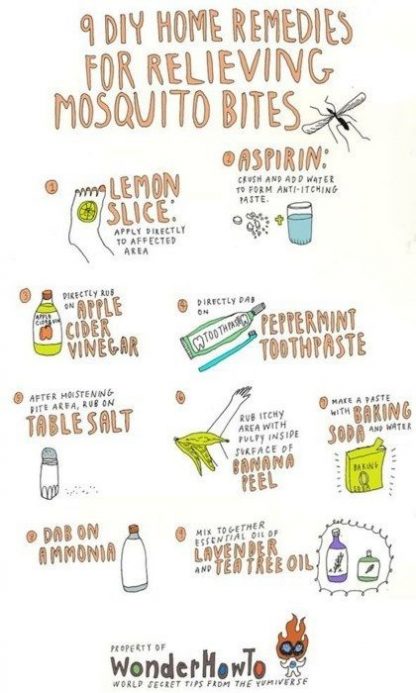 9 DIY HOME REMEDIES
FOR RELIEVING
MOSQUITO BITES
1
LEMON
SLICE:
APPLY DIRECTLY
TO AFFECTED
AREA
2
ASPIRIN:
CRUSH AND ADD WATER
TO FORM ANTI-ITCHING
PASTE.
+
3
DIRECTLY RUB
ON APPLE
CIDER
VINEGAR
APPLE
CIDER
4
DIRECTLY DAB
ON
PEPPERMINT
TOOTHPASTE
TOOTHPASTE
5
AFTER MOISTENING
BITE AREA, RUB ON
TABLE SALT
6
RUB ITCHY
AREA WITH
PULPY INSIDE
SURFACE OF
BANANA
PEEL
7
MAKE A PASTE
WITH BAKING
SODA AND WATER
BAKING
8
DAB ON
AMMONIA
9
MIX TOGETHER
ESSENTIAL OIL OF
LAVENDER
AND TEA TREE OIL
PROPERTY OF
WonderHowTo
WORLD SECRET TIPS FROM THE YUMIVERSE